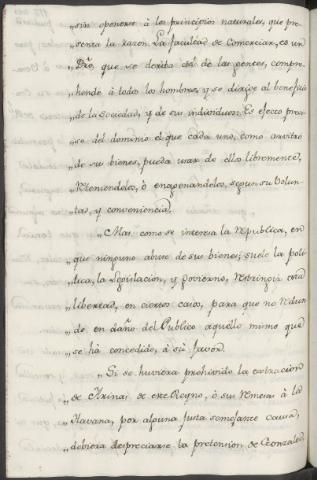 „sin oponerse à los principios naturales, que pre-
„senta la razon. La facultad de Comerciar, es un
„Dro, que se deriba del de las gentes, compre-
„hende à todos los hombres, y se dirige al beneficio
„de la sociedad, y de sus individuos. Es efecto preci-
„so del dominio el que cada uno, como arvitro
„de sus bienes, pueda usar de ellos libremente,
„reteniendolos, ò enagenandolos, segun su volun-
„tad, y conveniencia.
„Mas como se interesa la Republica, en
„que ninguno abuse de sus bienes; suele la poli-
„tica, la Legislacion, y Govierno, restringir esta
„libertad, en ciertos casos, para que no redun-
„de en daño del Publico aquello mismo que
„se hà concedido, à su favor.
„Si se huviera prohivido la extraccion
„de Arinas de este Reyno, ò sus remesas à la
„Havana, por alguna justa semejante causa,
„debiera despreciarse la pretension de Gonzales,